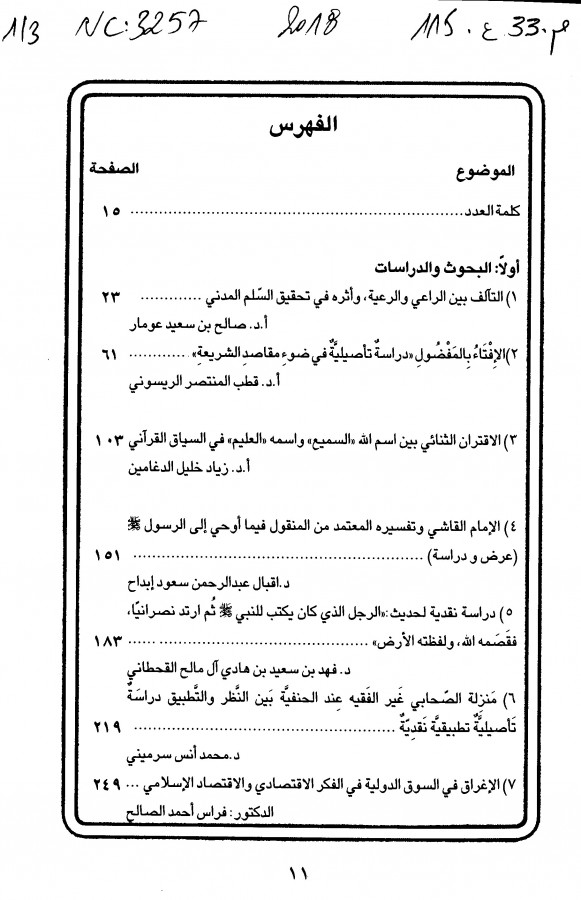 1/3 NC:3257 2018 م.33 ع.115
الفهرس
الموضوع الصفحة
كلمة العدد ............................................................. ١٥
أولاً: البحوث والدراسات
١) التآلف بين الراعي والرعية، وأثره في تحقيق السّلم المدني ............. ٢٣
أ.د. صالح بن سعيد عومار
٢)الإِفْتَاءُ بِالمَفْضُولِ «دراسةٌ تأصيليَّةٌ في ضوءِ مقاصدِ الشريعةِ» ............ ٦١
أ.د. قطب المنتصر الريسوني
٣) الاقتران الثنائي بين اسم الله «السميع» واسمه «العليم» في السياق القرآني ١٠٣
أ.د. زياد خليل الدغامين
٤) الإمام القاشي وتفسيره المعتمد من المنقول فيما أوحي إلى الرسول ﷺ
(عرض و دراسة) ..................................................... ١٥١
د.اقبال عبدالرحمن سعود إبداح
٥) دراسة نقدية لحديث:«الرجل الذي كان يكتب للنبي ﷺ ثُم ارتد نصرانيًا،
فقَصَمه الله، ولفظته الأرض» ............................................ ١٨٣
د. فهد بن سعيد بن هادي آل مالح القحطاني
٦) مَنزلة الصّحابي غَير الفَقيه عِند الحنفيَّة بَين النَّظر والتَّطبيق دراسَةٌ
تَأصيليَّةٌ تطبيقيَّة نَقديّةٌ ................................................ ٢١٩
د.محمد أنس سرميني
٧) الإغراق في السوق الدولية في الفكر الاقتصادي والاقتصاد الإسلامي ... ٢٤٩
الدكتور: فراس أحمد الصالح
١١